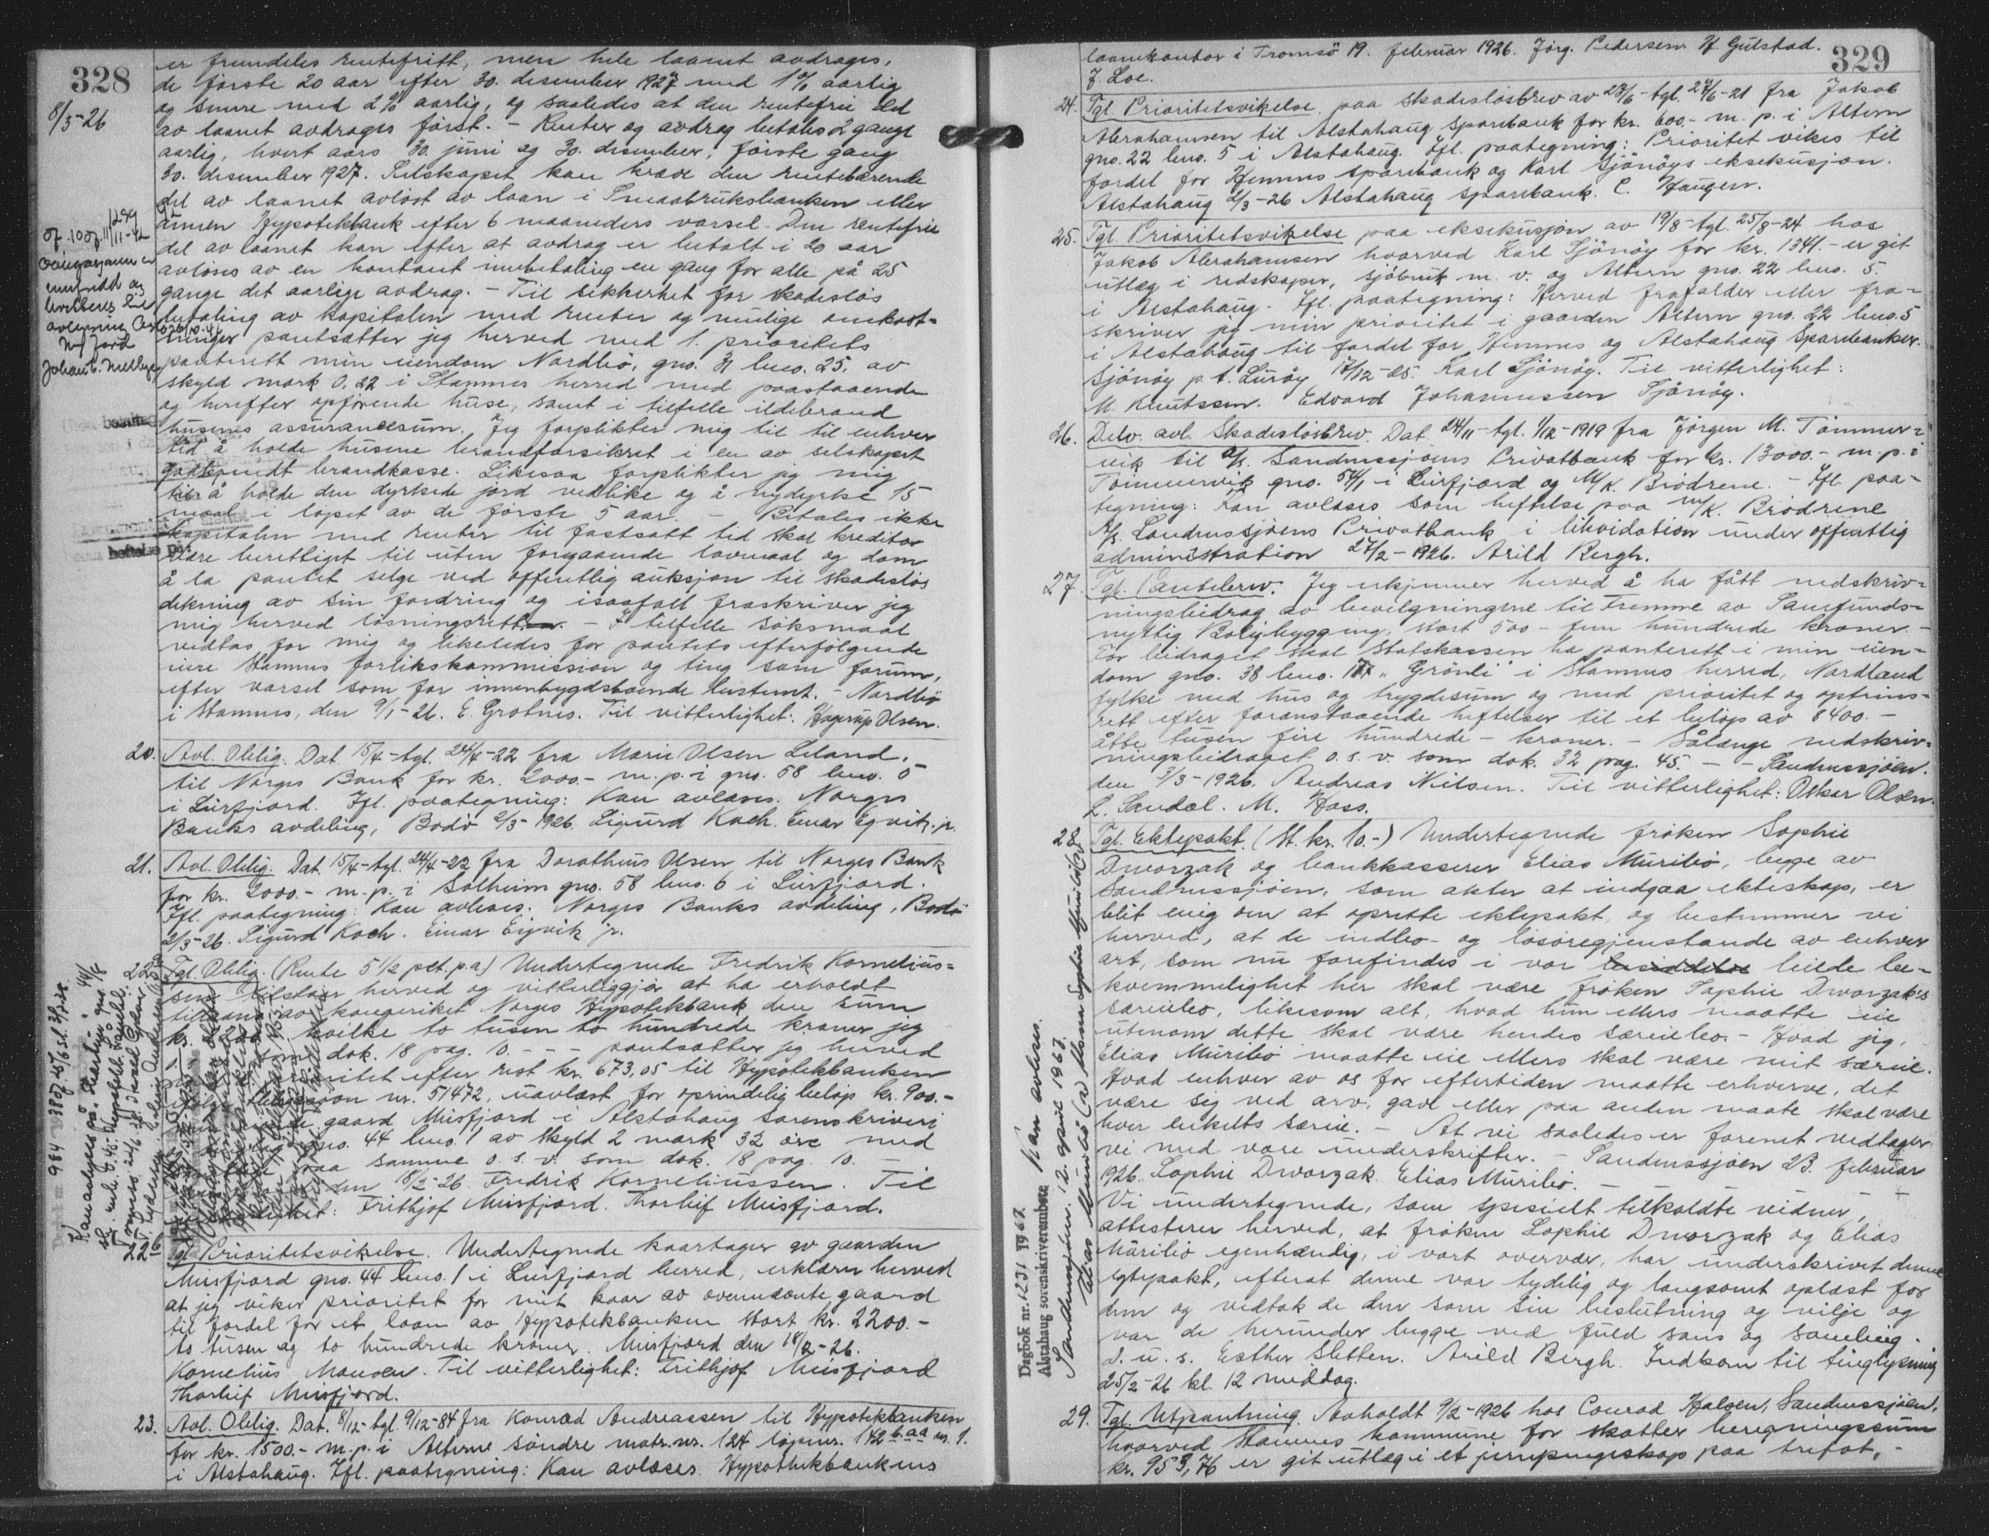 328
8/3-26
er fremdeles rentefritt, men hele laanet avdrages,
de første 20 aar efter 30. desember 1927 med 1% aarlig
og senere med 2% aarlig, og saaledes at den rentefrie del
av laanet avdrages först. - Renter og avdrag betales 2 gange
aarlig, hvert aars 30. juni og 30. desember, förste gang
30. desember 1927. Selskapet kan kræve den rentebærende
del av laanet avlöst av laan i Smaabruksbanken eller
annen Hypotekbank efter 6 maaneders varsel. Den rentefrie
del av laanet kan efter at avdrag er betalt i 20 aar
avlöses av en kontant innbetaling en gang for alle på 25
gange det aarlige avdrag. - Til sikkerhet for skadeslös
betaling av kapitalen med renter og mulige omkost-
ninger pantsætter jeg herved med 1. prioritets
panterett min eiendom Nordbö, gno. 31 bno. 25, av
skyld mark 0,22 i Stamnes herred med paastaaende
og herefter opförende huse, samt i tilfelle ildebrand
husenes assurancesum. Jeg forplikter mig til til enhver
tid å holde husene brandforsikret i en av selskapet
godkjendt brandkasse. Likesaa forplikter jeg mig
til å holde den dyrkede jord vedlike og å nydyrke 15
maal i löpet av de förste 5 aar. - Betales ikke
kapitalen med renter til fastsatt tid skal kreditor
være berettiget til uten foregaaende lovmaal og dom
å la pantet selge ved offentlig auksjon til skadeslös
dekning av sin fordring og isaafall fraskriver jeg
mig herved lösningsretten. - I tilfelle söksmaal
vedtas for mig og likeledes for pantets efterfölgende
eiere Stamnes forlikskommission og ting som forum,
efter varsel som for innenbygdsboende bestemt. - Nordbö
i Stamnes, den 9/1-26. E. Grotnes. Til vitterlighet: Hagerup Olsen.
20. Avl. Oblig. Dat 15/4-tgl. 24/4-22 fra Marie Olsen Leland
til Norges Bank for kr. 2000.- m. p. i gno. 58 bno. 5
i Leirfjord. Ifl. paategning: Kan avlæses. Norges
Banks avdeling, Bodö 2/3-1926. Sigurd Koch. Einar Eqvik. p.
21. Avl. Oblig. Dat. 15/4-tgl. 24/4-22 fra Dorotheus Olsen til Norges Bank
for kr. 2000.- m. p. i Solheim gno. 58 bno. 6 i Leirfjord.
Ifl. paategning: Kan avlæses. Norges Banks avdeling, Bodö
2/3-26. Sigurd Koch. Einar Eqvik p.
22a Tgl. Oblig. (Rente 5 1/2 pct. p.a.) Undertegnede Fredrik Kornelius-
sen tilstaar herved og vitterliggjör at ha erholdt
tillaans av kongeriket Norges Hypotekbank den sum
kr. 2200 hvilke to tusen to hundrede kroner jeg
dok. 18 pag. 10. - - - pantsætter jeg herved
prioritet efter rest kr. 673,05 til Hypotekbanken
obligasjon nr. 51472, uavlæst for oprindelig belöp kr. 900.-
gaard Meisfjord i Alstahaug sorenskriveri
gno. 44 bno. 1 av skyld 2 mark 32 öre med
paa samme o. s. v. som dok. 18 pag. 10. -
den 18/2-26. Fredrik Korneliussen. Til
vitterlighet: Frithjof Meisfjord. Thorleif Meisfjord.
22b Tgl. Prioritetsvikelse. Undertegnede kaartager av gaarden
Meisfjord gno. 44 bno. 1 i Leirfjord herred, erklærer herved
at jeg viker prioritet for mit kaar av ovennævnte gaard
til fordel for et laan av Hypotekbanken stort kr. 2200.-
to tusen og to hundrede kroner. Meisfjord den 18/2-26.
Kornelius Monsen. Til vitterlighet: Frithjof Meisfjord
Thorleif Meisfjord.
23. Avl. Oblig. Dat. 8/12-tgl. 9/12-84 fra Konrad Andreassen til Hypotekbanken
for kr. 1500.- m. p. i Alterne söndre matr. nr. 124 löpenr. 142 b aa nr. 1.
i Alstahaug. Ifl. paategning: Kan avlæses. Hypothekbankens
329
laanekontor i Tromsö 19. februar 1926. Jörg. Pedersen. H. Gulstad.
J. Loe.
24. Tgl. Prioritetsvikelse paa skadeslösbrev av 27/6-tgl. 27/6-21 fra Jakob
Abrahamsen til Alstahaug Sparebank for kr. 600,- m. p. i Altern
gno. 22 bno. 5 i Alstahaug. Ifl. paategning: Prioritet vikes til
fordel for Hemnes Sparebank og Karl Sjönöys eksekusjon.
Alstahaug 2/3-26 Alstahaug Sparebank. C. Haugen.
25. Tgl. Prioritetsvikelse paa eksekusjon av 19/8-tgl. 25/8-24 hos
Jakob Abrahamsen hvorved Karl Sjönöy for kr. 1341.- er git
utlæg i redskaper, sjöbruk m. v. og Altern gno. 22 bno. 5.
i Alstahaug. Ifl. paategning: Herved frafalder eller fra-
skriver jeg min prioritet i gaarden Altern gno. 22 bno. 5
i Alstahaug til fordel for Hemnes og Alstahaug Sparebanker.
Sjönöy p. t. Luröy 17/12-25. Karl Sjönöy. Til vitterlighet:
M. Knutssen. Edvard Johannessen Sjönöy.
26. Delv. avl. Skadeslösbrev. Dat. 24/11-tgl. 1/12-1919 fra Jörgen M. Tömmer-
vik til A/S. Sandnessjöens Privatbank for kr. 13000.- m. p. i
Tömmervik gno. 54/1 i Leirfjord og M/K. Brödrene. - Ifl. paa-
tegning: Kan avlæses som heftelse paa M/K. Brödrene
A/S. Sandnessjöens Privatbank i likvidation under offentlig
administration 27/2-1926. Arild Bergh.
27. Tgl. Pantebrev. Jeg erkjenner herved å ha fått nedskriv-
ningsbidrag av bevilgningerne til Fremme av Samfunds-
nyttig Boligbygging, stort 500 - fem hundrede kroner. -
For bidraget skal Statskassen ha panterett i min eien-
dom gno. 38 bno. 177 "Grönli" i Stamnes herred, Nordland
fylke med hus og byggesum og med prioritet og optrins-
rett efter foranstaaende heftelser til et belöp av 8400.-
åtte tusen fire hundrede - kroner. - Sålænge nedskriv-
ningsbidraget o.s.v. som dok. 32 pag. 45. - - Sandnessjöen.
den 3/3-1926. Andreas Nilsen. Til vitterlighet: Oskar Olsen.
L. Sandal. M. Hoss.
28. Tgl. Ektepakt. (St. kr. 10.-) Undertegnede fröken Sophie
Dworzak og bankkasserer Elias Muribö, begge av
Sandnessjöen, som akter at indgaa ekteskap, er
blit enig om at oprette ektepakt, og bestemmer vi
herved, at de indbo- og lösöregjenstande av enhver
art, som nu forefindes i vor leiede be-
kvemmelighet her skal være fröken Sophie Dworzak's
særeiebo, likesom alt, hvad hun ellers maatte eie
utenom dette skal være hendes særeiebo. - Hvad jeg,
Elias Muribö maatte eie ellers skal være mit særeie.
Hvad enhver av os for eftertiden maatte erhverve, det
være sig ved arv, gave eller paa anden maate skal være
hver enkelts særeie. - At vi saaledes er forenet vedtages
vi med vore underskrifter. - Sandnessjöen 23. februar
1926. Sophie Dworzak. Elias Muribö. -
Vi undertegnede, som spesielt tilkaldte vidner,
attesterer herved, at fröken Sophie Dworzak og Elias
Muribö egenhændig, i vort overvær, har underskrevet denne
egtepakt, efterat denne var tydelig og langsomt oplæst for
dem og vedtok de den som sin beslutning og vilje og
var de herunder begge ved fuld sans og samling.
D. u. s. Esther Sletten. Arild Bergh. Indkom til tinglysning
25/2-26 kl. 12 middag.
29. Tgl. Utpantning. Avholdt 9/2-1926 hos Conrad Halsen, Sandnessjöen,
hvorved Stamnes kommune for skatter beregningssum
kr. 953,76 er git utlæg i et jernpengeskap paa trefot, -
Dagbok nr. 1231 1967. Kan avleses.
Alstahaug sorenskriverembete
Sandnessjøen, 12. april 1967.